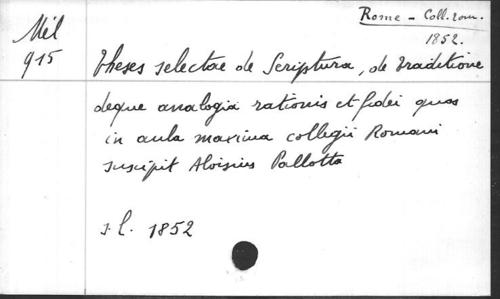 Rome - Coll. rom.
1852.
Mél
915
Theses selectae de Scriptura, de traditione
deque analogia rationis et fidei quas
in aula maxima collegii Romani
suscipit Aloisius Pallotta
s. l. 1852